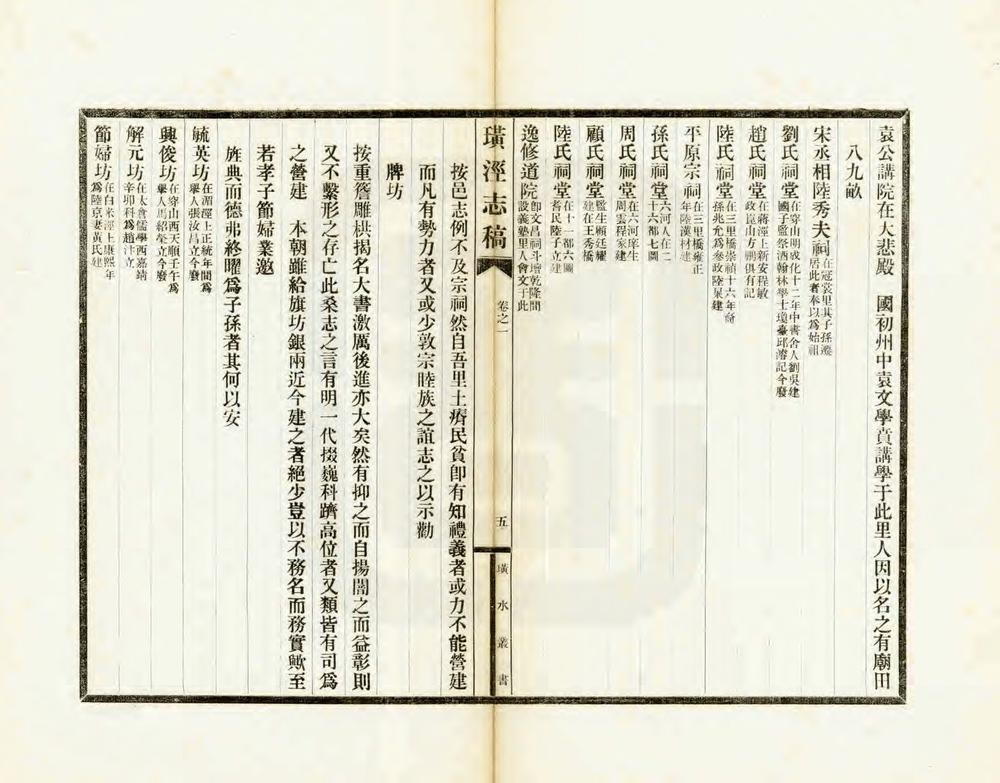 袁公講院在大悲殿　國初州中袁文學賁講學于此里人因以名之有廟田
八九畝
宋丞相陸秀夫祠在冠裳里其子孫遷居此者奉以為始祖
劉氏祠堂在穿山明成化十二年中書舍人劉吳建國子監祭酒翰林學士瓊臺邱濬記今廢
趙氏祠堂在蔣涇上新安程敏政崑山方鵬俱有記
陸氏祠堂在三里橋崇禎十六年裔孫兆允為參政陸杲建
平原宗祠在三里橋雍正年陸漢材建
孫氏祠堂六河人在二十六都七圖
周氏祠堂在六河庠生周雲程家建
顧氏祠堂監生顧廷耀建在王秀橋
陸氏祠堂在十一都六圖耆民陸子立建
逸修道院卽文昌祠斗壇乾隆間設義塾里人會文于此
璜涇志稿　卷之一　五　璜水叢書
按邑志例不及宗祠然自吾里土瘠民貧卽有知禮義者或力不能營建
而凡有勢力者又或少敦宗睦族之誼志之以示勸
牌坊
按重簷雕栱揭名大書激厲後進亦大矣然有抑之而自揚闇之而益彰則
又不繫形之存亡此桑志之言有明一代掇巍科躋高位者又類皆有司為
之營建　本朝雖給旗坊銀兩近今建之者絕少豈以不務名而務實歟至
若孝子節婦業邀
旌典而德弗終曜為子孫者其何以安
毓英坊在湄涇上正統年間為舉人張汝昌立今廢
興俊坊在穿山西天順壬午為舉人馬紹榮立今廢
解元坊在太倉儒學西嘉靖辛卯科為趙汴立
節婦坊在白米涇上康熙年為陸京妻黃氏建